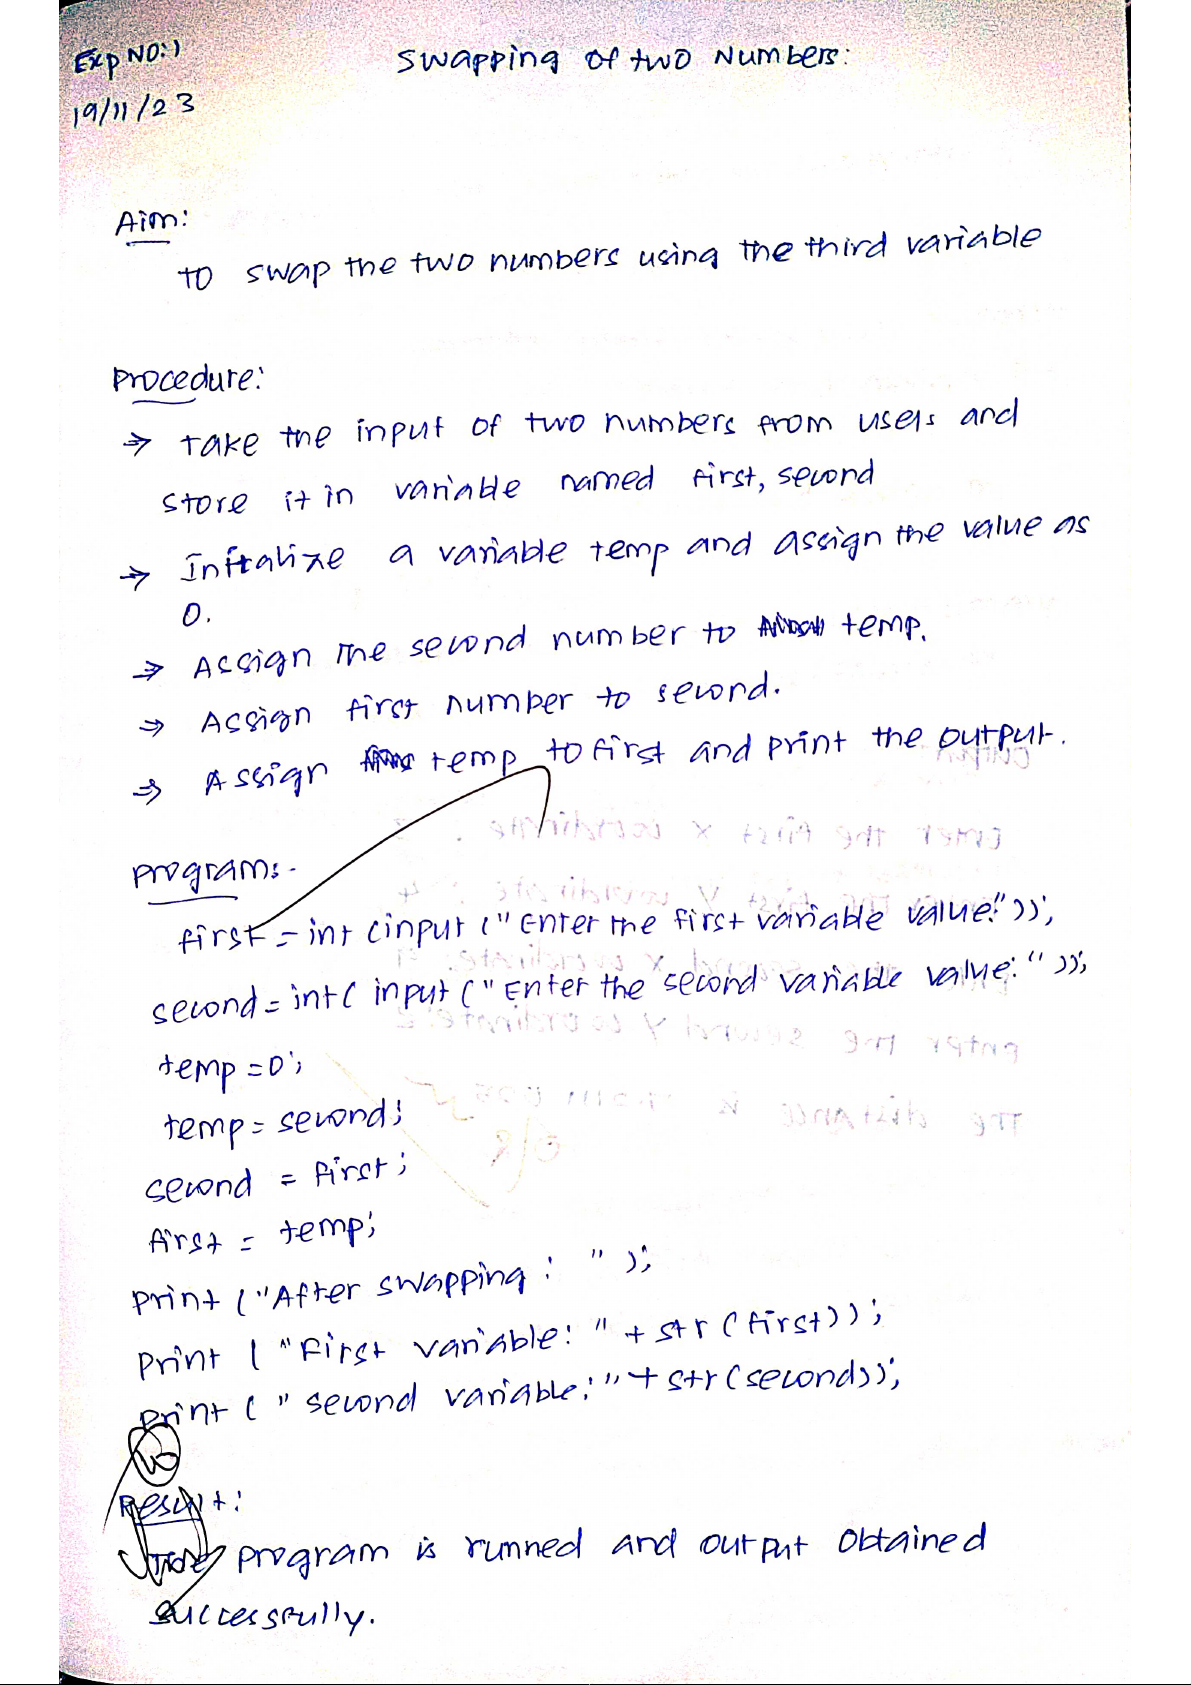 Exp NO:1
Swapping of two Numbers:
19/11/23
Aim:
To swap the two numbers using the third variable
Procedure:
⇒ Take the input of two numbers from users and
store it in variable named first, second
⇒ Initialize a variable temp and assign the value as
0.
⇒ Assign the second number to temp.
⇒ Assign first number to second.
⇒ Assign temp to first and print the output.
Program:-
first = int (input ("Enter the first variable value:"));
second = int( input ("Enter the second variable value:"));
temp = 0;
temp = second;
second = first;
first = temp;
print ("After swapping : ");
print ("First variable: " + str (first));
print (" second variable:" + str (second));
10
Result:
The program is runned and output obtained
successfully.